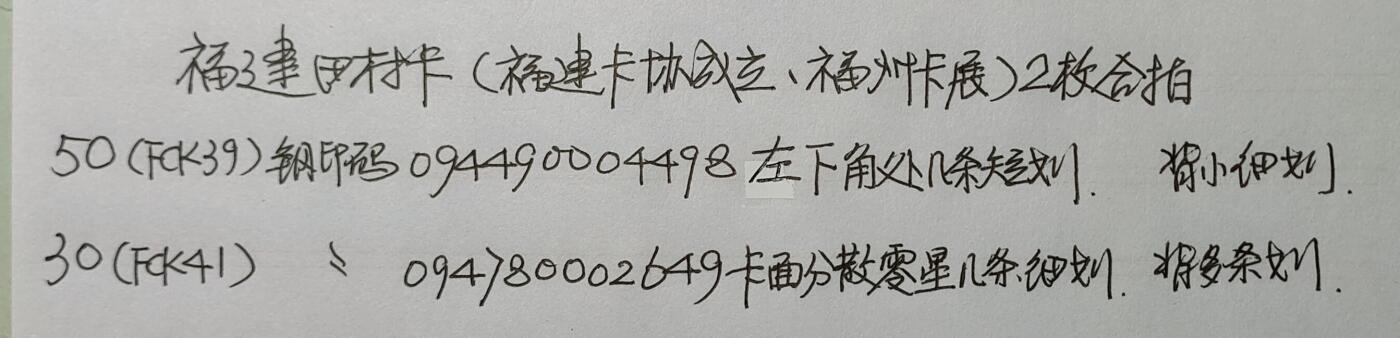 福建田村卡（福建卡协成立、福州卡展）2枚合拍
50（FCK39）钢印码094490004498左下角处几条短划. 背小细划.
30（FCK41） 〃 094780002649卡面分散零星几条细划. 背多条划.